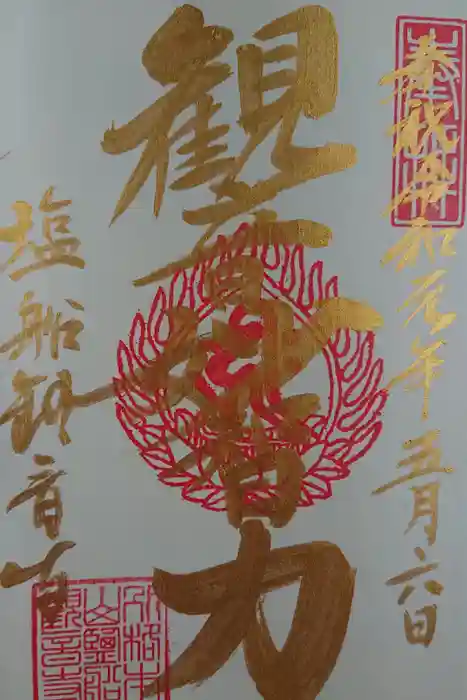 奉祝令和元年五月六日
観音妙智力
塩船観音寺